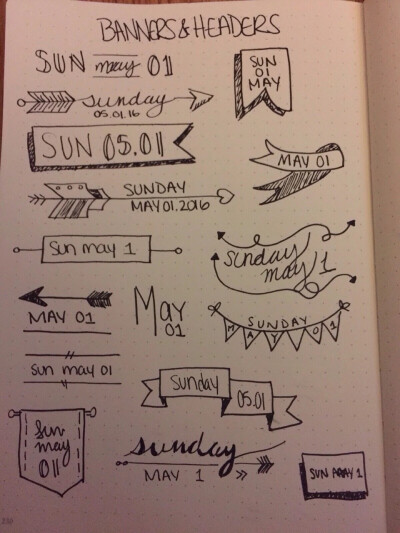 BANNERS & HEADERS
SUN may 01
SUN
01
MAY
sunday
05.01.16
SUN 05.01
MAY 01
SUNDAY
MAY 01.2016
Sun may 1
sunday
may 1
MAY 01
May
01
SUNDAY
MAY 01
sun may 01
Sunday
05.01
sun
may
01
sunday
MAY 1
SUN MAY 1